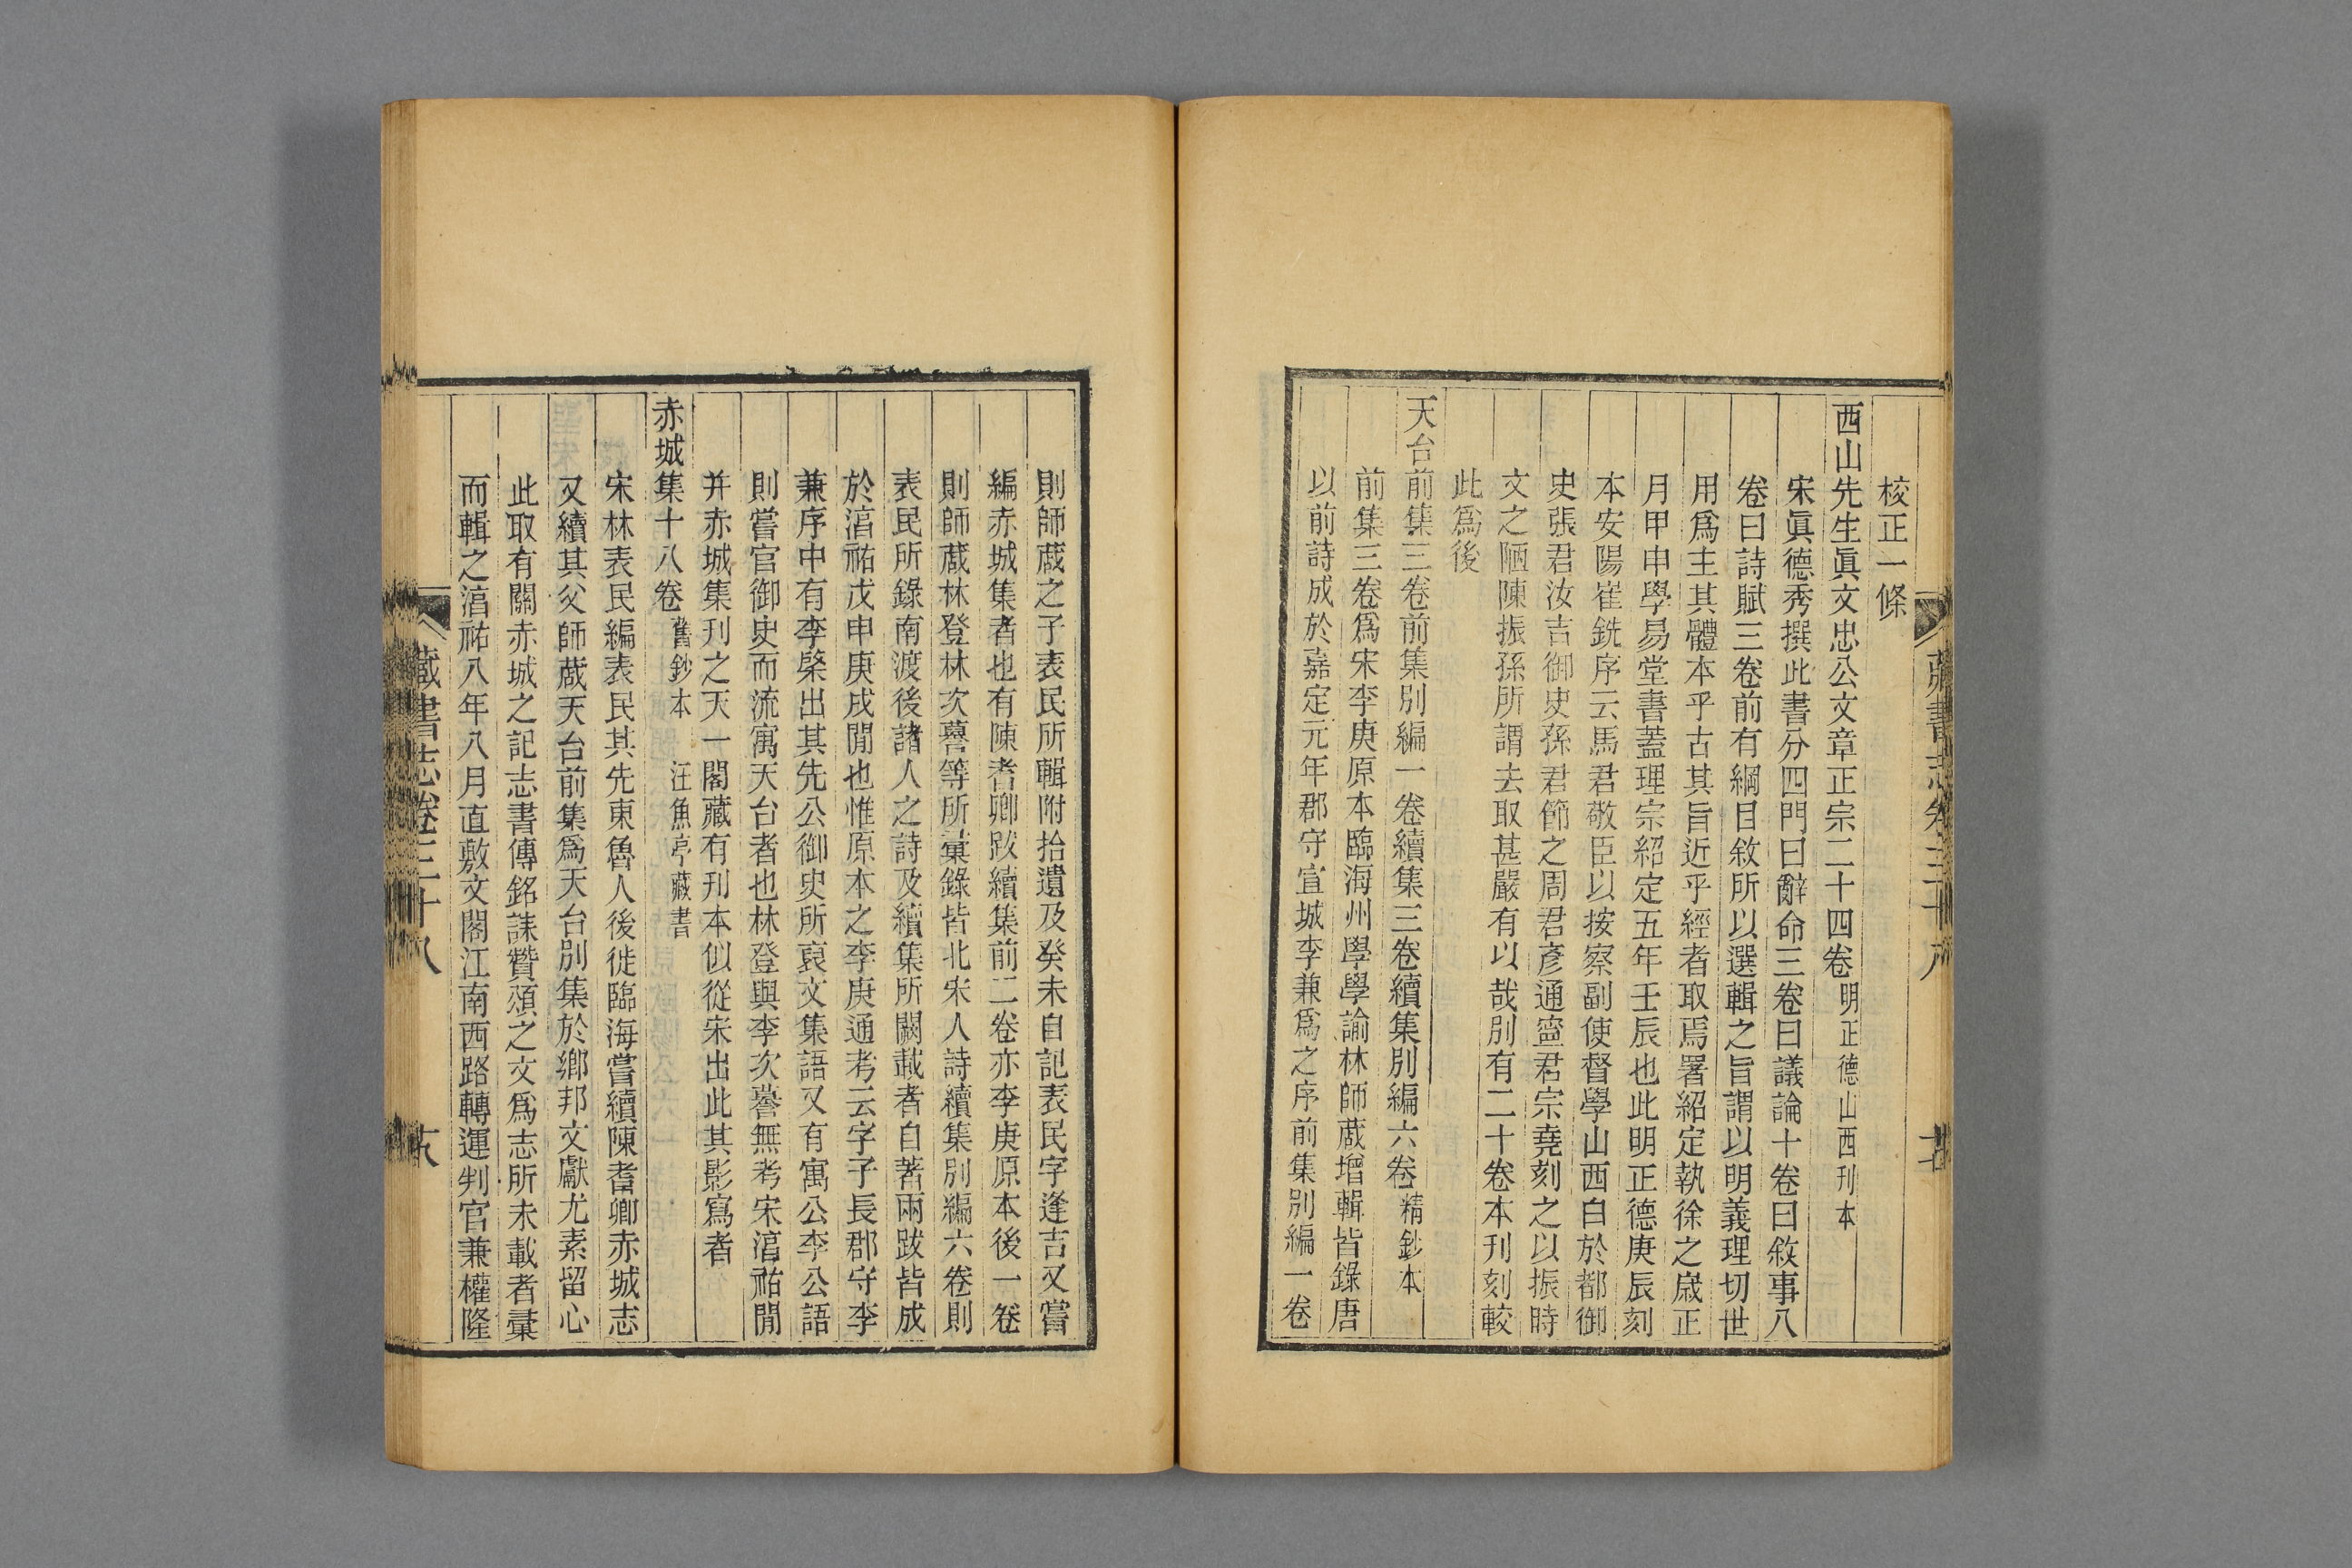 校正一條
西山先生眞文忠公文章正宗二十四卷 明正德山西刊本
宋眞德秀撰此書分四門曰辭命三卷曰議論十卷曰敘事八
卷曰詩賦三卷前有綱目敘所以選輯之旨謂以明義理切世
用爲主其體本乎古其旨近乎經者取焉署紹定執徐之歲正
月甲申學易堂書蓋理宗紹定五年壬辰也此明正德庚辰刻
本安陽崔銑序云馬君敬臣以按察副使督學山西白於都御
史張君汝吉御史孫君節之周君彥通寍君宗堯刻之以振時
文之陋陳振孫所謂去取甚嚴有以哉別有二十卷本刊刻較
此爲後
天台前集三卷前集別編一卷續集三卷續集別編六卷 精鈔本
前集三卷爲宋李庚原本臨海州學學諭林師蒧增輯皆錄唐
以前詩成於嘉定元年郡守宣城李兼爲之序前集別編一卷
則師蒧之子表民所輯附拾遺及癸未自記表民字逢吉又嘗
編赤城集者也有陳耆卿跋續集前二卷亦李庚原本後一卷
則師蒧林登林次謩等所彙錄皆北宋人詩續集別編六卷則
表民所錄南渡後諸人之詩及續集所闕載者自著兩跋皆成
於湻祐戊申庚戌閒也惟原本之李庚通考云字子長郡守李
兼序中有李棨出其先公御史所裒文集語又有寓公李公語
則嘗官御史而流寓天台者也林登與李次謩無考宋湻祐閒
并赤城集刊之天一閣藏有刊本似從宋出此其影寫者
赤城集十八卷 舊鈔本 汪魚亭藏書
宋林表民編表民其先東魯人後徙臨海嘗續陳耆卿赤城志
又續其父師蒧天台前集爲天台別集於鄉邦文獻尤素留心
此取有關赤城之記志書傳銘誄贊頌之文爲志所未載者彙
而輯之湻祐八年八月直敷文閣江南西路轉運判官兼權隆
藏書志卷三十八